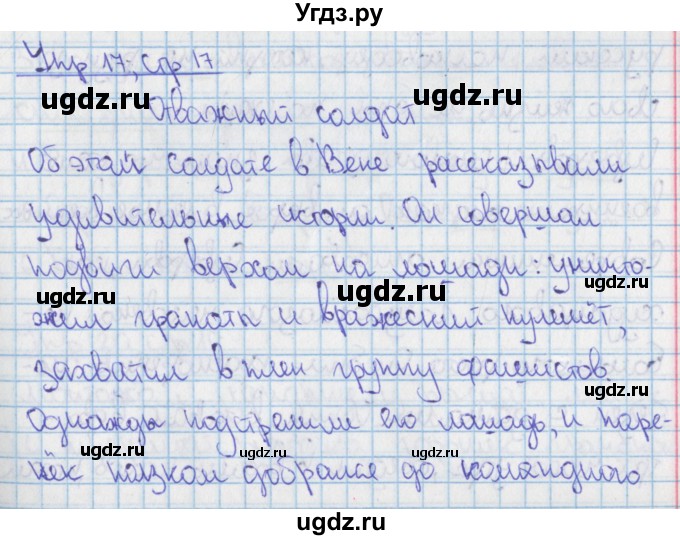 Угдз.ру
Упр 17, стр 17
Отважный солдат
Об этом солдате в Вене рассказывали
удивительные истории. Он совершал
подвиги верхом на лошади: уничто-
жил гранаты и вражеский пулемёт,
захватил в плен группу фашистов.
Однажды подстрелили его лошадь, и паре-
нёк ползком добрался до командного
ugdz.ru
ugdz.ru
ugdz.ru
ugdz.ru
ugdz.ru
ugdz.ru
ugdz.ru
ugdz.ru
ugdz.ru
ugdz.ru